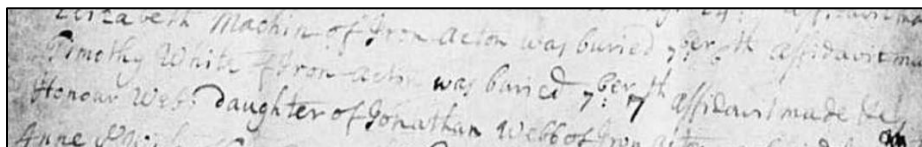 Elizabeth Machin of Iron Acton was buried 7ber 6th Affidavit
Timothy White of Iron Acton was buried 7ber 7th Affidavit made
Honour Webb daughter of Jonathan Webb of Iron Acton
Anne